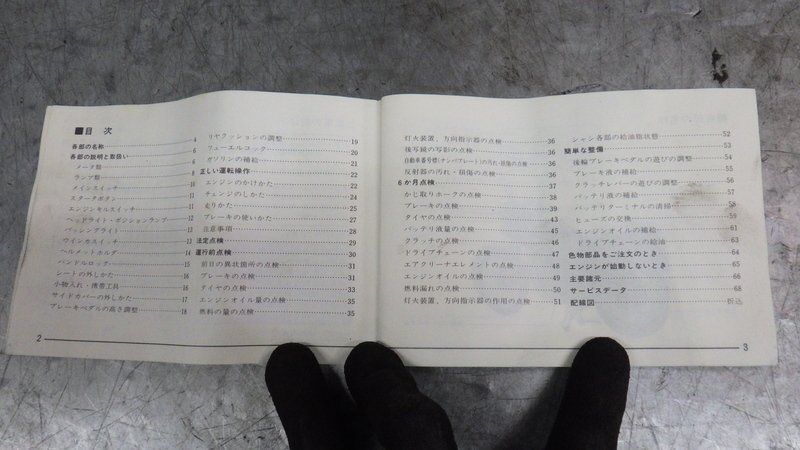 ■目 次
各部の名称 4
各部の説明と取扱い 6
メータ類 6
ランプ類 8
メインスイッチ 9
スタータボタン 11
エンジンキルスイッチ 11
ヘッドライト・ポジションランプ 12
パッシングライト 13
ウインカスイッチ 13
ヘルメットホルダ 14
ハンドルロック 15
シートの外しかた 16
小物入れ・携帯工具 16
サイドカバーの外しかた 17
ブレーキペダルの高さ調整 18
リヤクッションの調整 19
フューエルコック 20
ガソリンの補給 21
正しい運転操作 22
エンジンのかけかた 22
チェンジのしかた 24
走りかた 25
ブレーキの使いかた 27
注意事項 28
法定点検 29
運行前点検 30
前日の異状箇所の点検 31
ブレーキの点検 31
タイヤの点検 33
エンジンオイル量の点検 35
燃料の量の点検 35
2
灯火装置、方向指示器の点検 36
後写鏡の写影の点検 36
自動車番号標(ナンバプレート)の汚れ・損傷の点検 36
反射器の汚れ・損傷の点検 36
6か月点検 37
かじ取りホークの点検 38
ブレーキの点検 39
タイヤの点検 43
バッテリ液量の点検 45
クラッチの点検 46
ドライブチェーンの点検 47
エアクリーナエレメントの点検 48
エンジンオイルの点検 49
燃料漏れの点検 50
灯火装置、方向指示器の作用の点検 51
シャシ各部の給油脂状態 52
簡単な整備 53
後輪ブレーキペダルの遊びの調整 54
ブレーキ液の補給 54
クラッチレバーの遊びの調整 56
バッテリ液の補給 57
バッテリターミナルの清掃 58
ヒューズの交換 59
エンジンオイルの補給 61
ドライブチェーンの給油 63
色物部品をご注文のとき 64
エンジンが始動しないとき 65
主要諸元 66
サービスデータ 68
配線図 折込
3